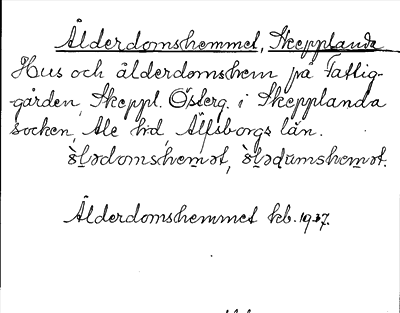 Ålderdomshemmet, Skepplanda
Hus och ålderdomshem på Fattig-
gården, Skeppl. Österg. i Skepplanda
socken, Ale hd, Älfsborgs län.
Ålderdomshemmet kb. 1937.